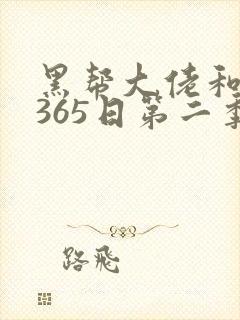 黑帮大佬和
365日第二季
路飛